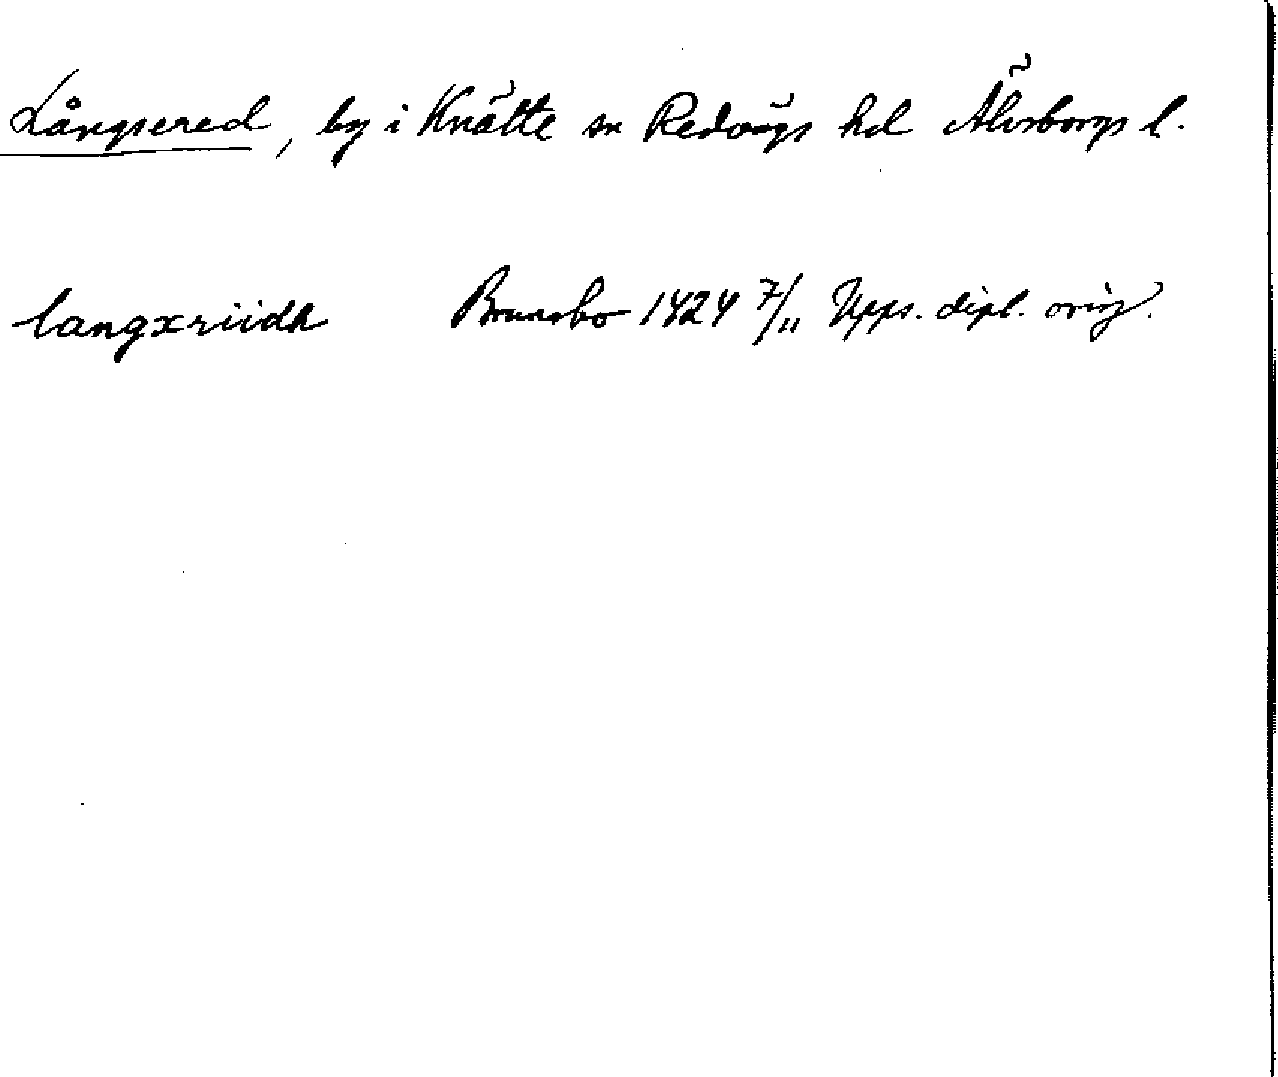 Långsered, by i Knätte sn Redvägs hd Älvsborgs l.
langxriidh Brunsbo 1424 7/11 Upps. dipl. orig.